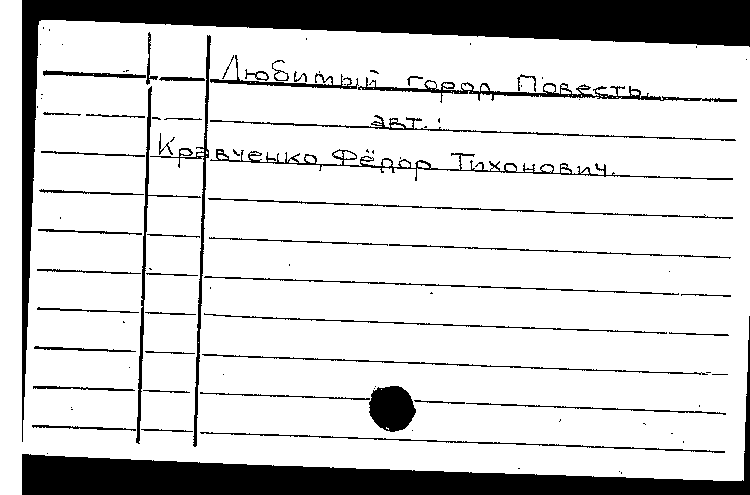 Любимый город. Повесть.
авт.:
Кравченко, Фёдор Тихонович.